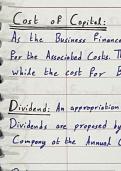 Cost of Capital:
As the Business Finance
For the Associated Costs. Th
while the cost For E
Dividend: An appropriation
Dividends are proposed by
Company at the Annual G